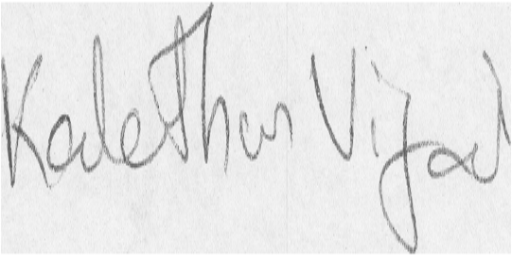 Kalethur Vijai